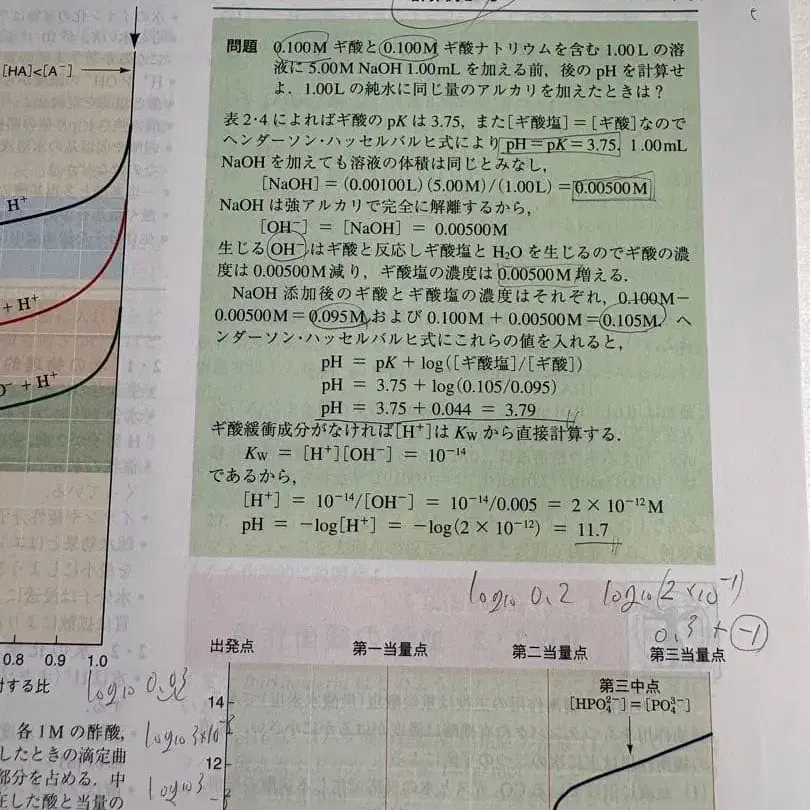 [HA]<[A⁻]
H⁺
+ H⁺
O⁻ + H⁺
0.8 0.9 1.0
する比
各1Mの酢酸,
したときの滴定曲
部分を占める.中
在した酸と当量の
問題 0.100M ギ酸と 0.100M ギ酸ナトリウムを含む 1.00 L の溶
液に 5.00M NaOH 1.00mL を加える前,後の pH を計算せ
よ.1.00L の純水に同じ量のアルカリを加えたときは?
表2・4によればギ酸の pK は 3.75,また[ギ酸塩]=[ギ酸]なので
ヘンダーソン・ハッセルバルヒ式により pH=pK=3.75. 1.00mL
NaOH を加えても溶液の体積は同じとみなし,
[NaOH] = (0.00100L)(5.00M)/(1.00L) = 0.00500M
NaOH は強アルカリで完全に解離するから,
[OH⁻] = [NaOH] = 0.00500M
生じる OH⁻ はギ酸と反応しギ酸塩と H₂O を生じるのでギ酸の濃
度は 0.00500M 減り,ギ酸塩の濃度は 0.00500M 増える.
NaOH 添加後のギ酸とギ酸塩の濃度はそれぞれ,0.100M−
0.00500M = 0.095M および 0.100M + 0.00500M = 0.105M. ヘ
ンダーソン・ハッセルバルヒ式にこれらの値を入れると,
pH = pK + log([ギ酸塩]/[ギ酸])
pH = 3.75 + log(0.105/0.095)
pH = 3.75 + 0.044 = 3.79
ギ酸緩衝成分がなければ[H⁺]は Kw から直接計算する.
Kw = [H⁺][OH⁻] = 10⁻¹⁴
であるから,
[H⁺] = 10⁻¹⁴/[OH⁻] = 10⁻¹⁴/0.005 = 2 × 10⁻¹²M
pH = −log[H⁺] = −log(2 × 10⁻¹²) = 11.7
log₁₀ 0.2 log₁₀(2×10⁻¹)
0.3 + −1
log₁₀ 0.03
log₁₀ 3×10
log₁₀ 3
出発点 第一当量点 第二当量点 第三当量点
第三中点
[HPO₄²⁻]=[PO₄³⁻]
14
12